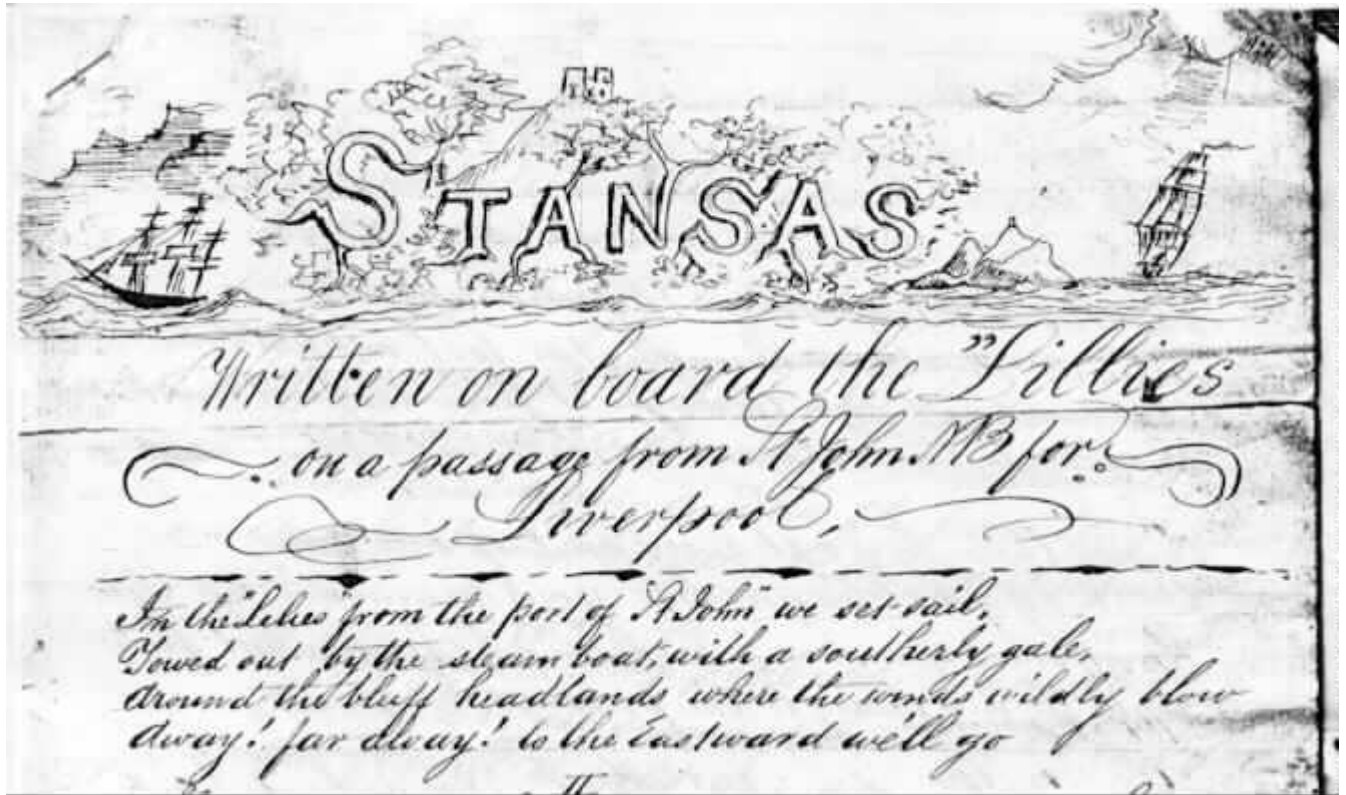 STANSAS
Written on board the "Lillies
on a passage from St John NB for
Liverpool,
In the "Lilies" from the port of "St John" we set sail,
Towed out by the steam boat, with a southerly gale,
Around the bluff headlands where the winds wildly blow
Away! far away! to the Eastward we'll go
II